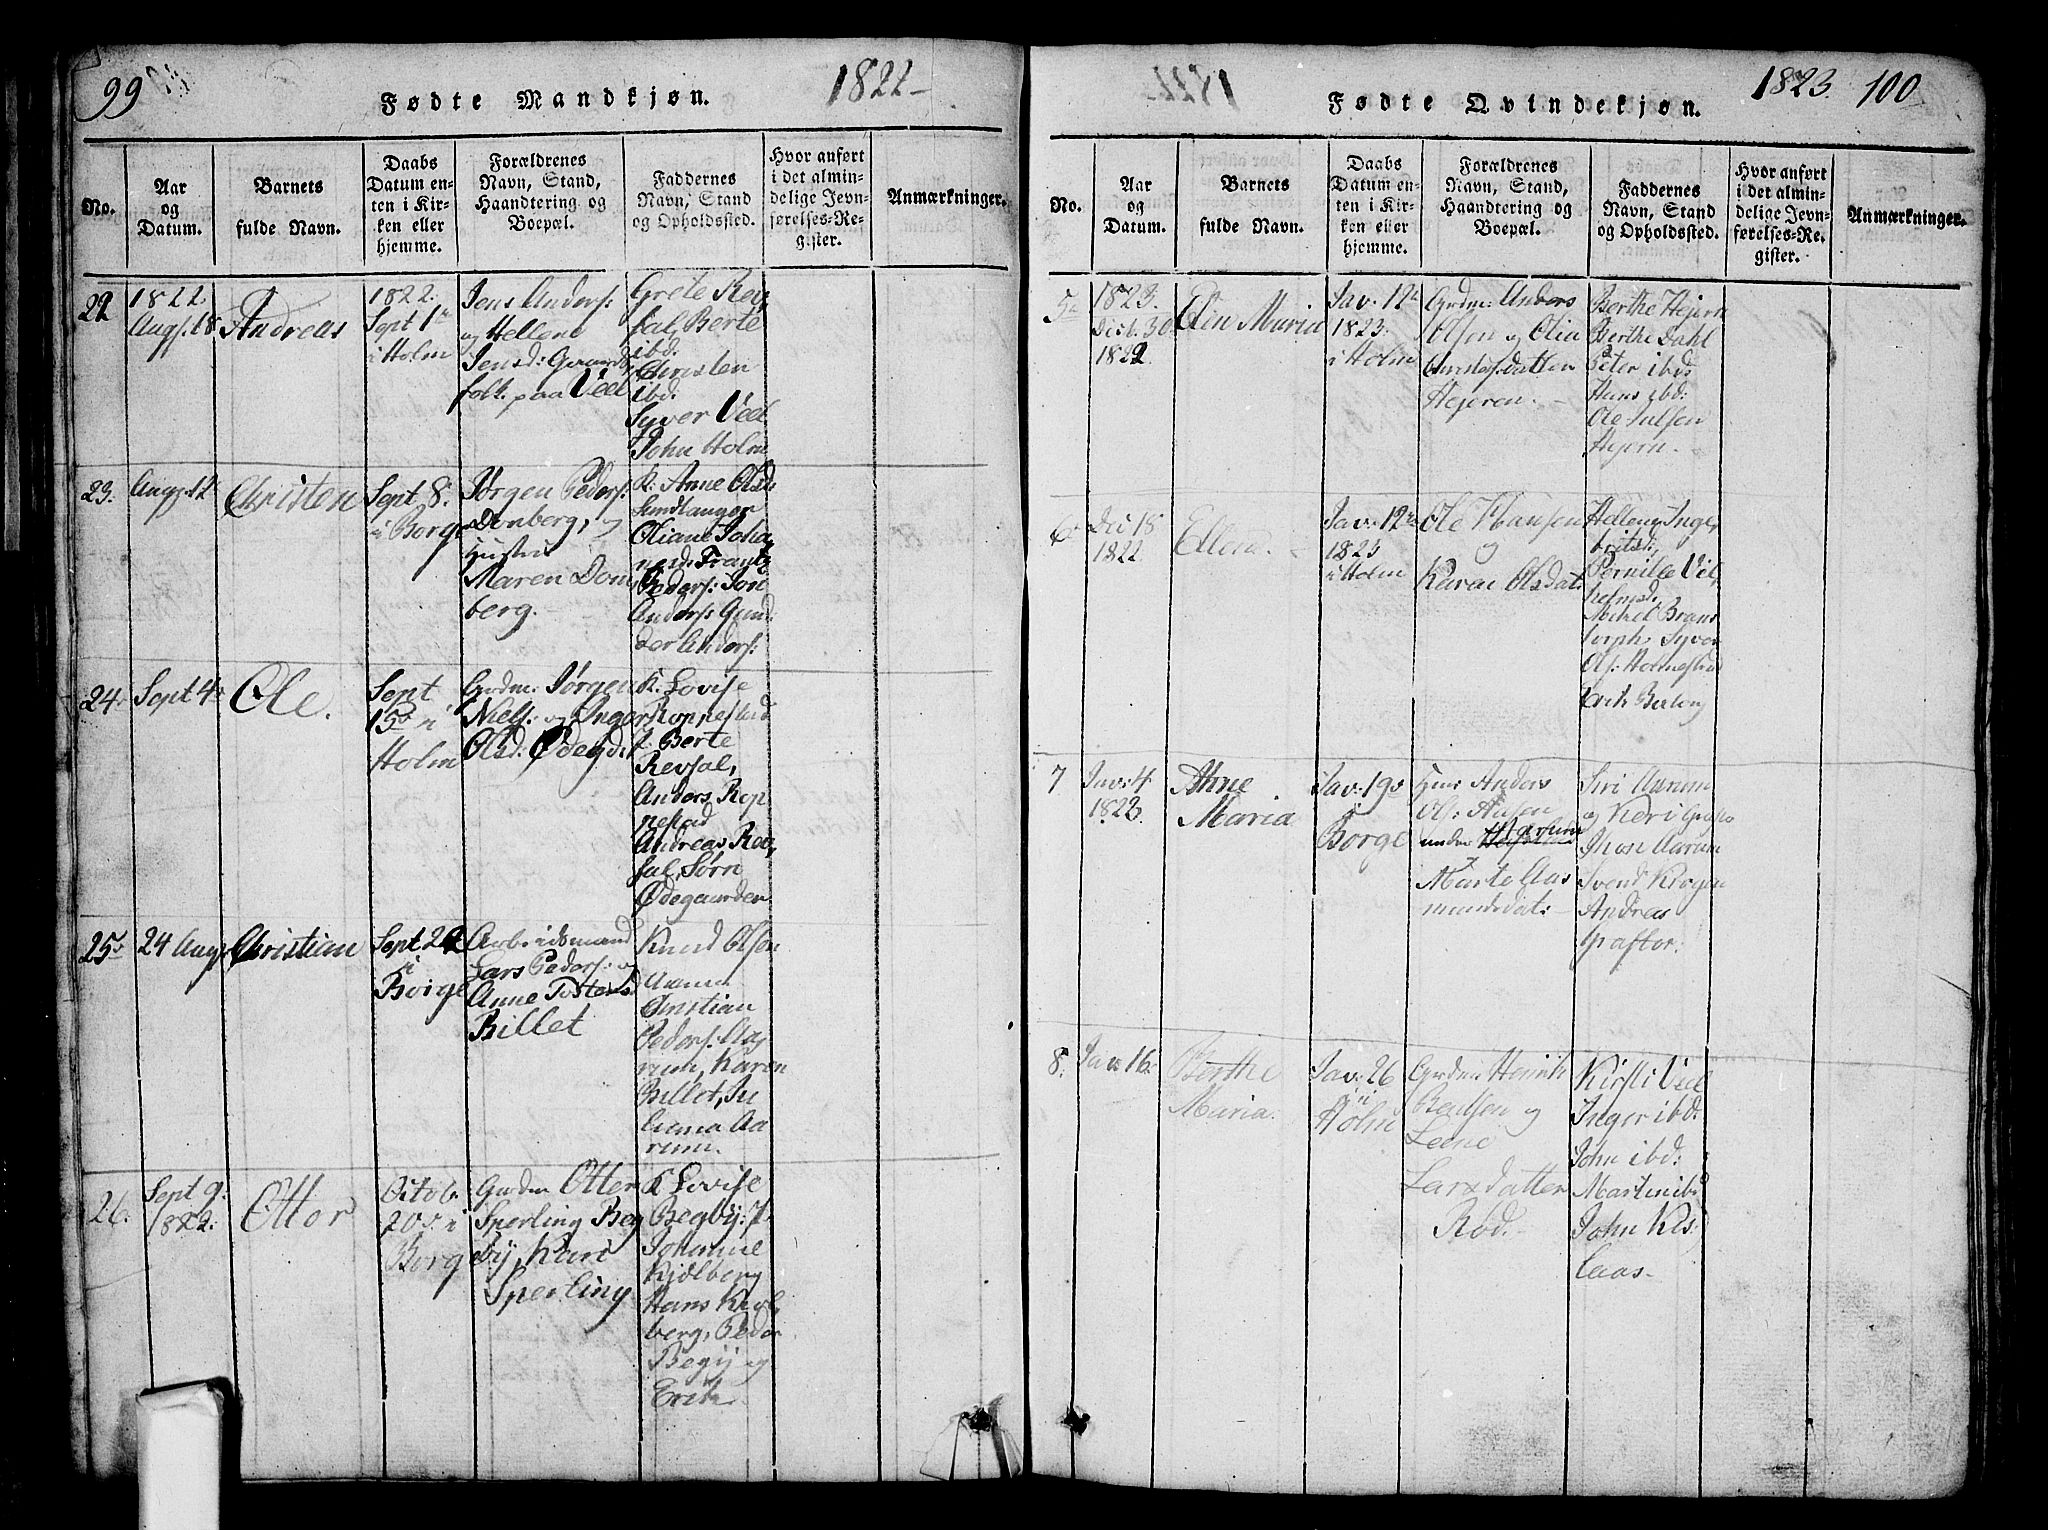 99
Fødte Mandkjøn.
1822
No.
Aar
og
Datum.
Barnets
fulde Navn.
Daabs
Datum en-
ten i Kir-
ken eller
hjemme.
Forældrenes
Navn, Stand,
Haandtering og
Boepæl.
Faddernes
Navn, Stand
og Opholdssted.
Hvor anført
i det almin-
delige Jevn-
førelses-Re-
gister.
Anmærkninger.
22
1822
Augs. 18
Andreas
1822.
Sept 1
i Holm
Jens Anders:
og Hellene
Jensd: Gaard
folk paa Veel
Grete Rev
sal, Berte
ibd.
Christen
ibd.
Syver Veel
John Holm
23.
Augs. 12
Christen
Sept 8.
i Borge
Jørgen Peders:
Donberg, og
Hustru
Maren Don
berg.
K: Anne Olsd:
Sundtangen
Oliane Joha
nesd: Frantz
Peders: Jon
Anders: Gun
der Anders:
24.
Sept 4
Ole.
Sept
15 i
Holm
Grdm: Jørgen
Niels: og Inger
Olsd: Ødegd:
K. Lovise
Roppestad
J. Berte
Revsal,
Anders Rop
pestad
Andreas Rev
sal, Sørn
Ødegaarden
25
24 Aug
Christian
Sept 22
i
Borge
Arbeidsmand
Lars Peders: og
Anne Tostensd
Billet
Knud Olsen
Aarum
Christian
Peders: Aa
rum, Karen
Billet, Ju
liana Aa
rum.
26.
Sept 9.
1822.
Otter
Octob.
20 i
Borge
Grdm Otter
Sperling Beg
by, Kari
Sperling
K Lovise
Begby: J.
Johanne
Kjølberg
Hans Kjøl
berg, Peder
Begby og
Erik
1823.
100
Fødte Qvindekjøn.
No.
Aar
og
Datum.
Barnets
fulde Navn.
Daabs
Datum en-
ten i Kir-
ken eller
hjemme.
Forældrenes
Navn, Stand,
Haandtering og
Boepæl.
Faddernes
Navn, Stand
og Opholdssted.
Hvor anført
i det almin-
delige Jevn-
førelses-Re-
gister.
Anmærkninger.
5
1823.
Decb. 30
1822
Elin Maria
Jav: 12
1823.
i Holm
Grdm: Anders
Olsen og Olia
Christofsdatter
Hejeren.
Berthe Hejern
Berthe Dahl
Peter ibd:
Hans ibd:
Ole Julsen
Hejern
6
Dec 18
1822
Ellen
Jav: 12
1823
i Holm
Ole Hansen
og
Karen Olsdat:
Helleng Inge
britsd:
Pernille Vil
helmsd.
Mikel Brans
torph, Syver
Ols: Holmestrand
Erik Berberg
7
Jav: 4
1823.
Anne
Maria
Jav: 19
i
Borge
Huus Anders
Ols: Aasen
under Aarum
Marte Aas
mundsdat:
Siri Aarum
og Keri
Thosn Aarum
Svend Krogen
Andreas
8.
Jav 16.
Berthe
Maria.
Jav: 26
i
Holm
Grdm Henrik
og
Leene
Larsdatter
Rød.
Kirsti Veel
Inger ibd.
John ibd:
Martin ibd
John Kis
laas